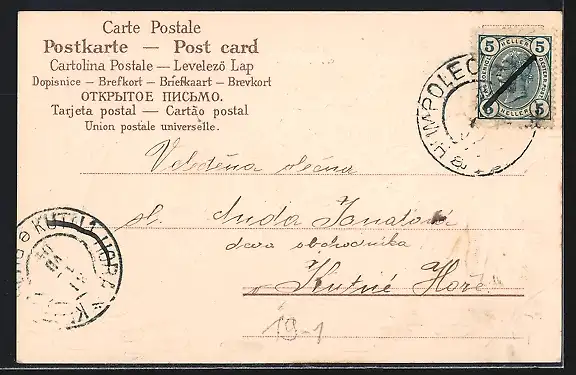 Carte Postale
Postkarte — Post card
Cartolina Postale — Levelező Lap
Dopisnice — Brefkort — Briefkaart — Brevkort
ОТКРЫТОЕ ПИСЬМО.
Tarjeta postal — Cartão postal
Union postale universelle.
5 HELLER 5
5 HELLER 5
HUMPOLEC
Veleděna slečna
sl. Anda
dcera obchodníka
v Kutné Hoře
KUTNÁ HORA
19-1